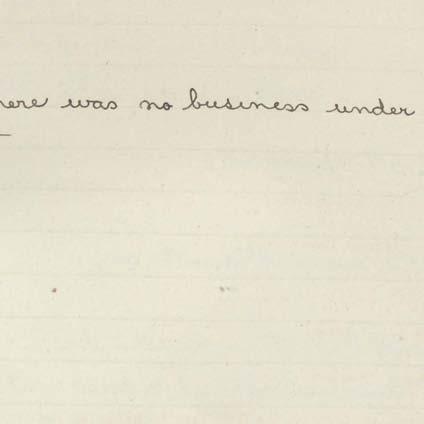 here was no business under